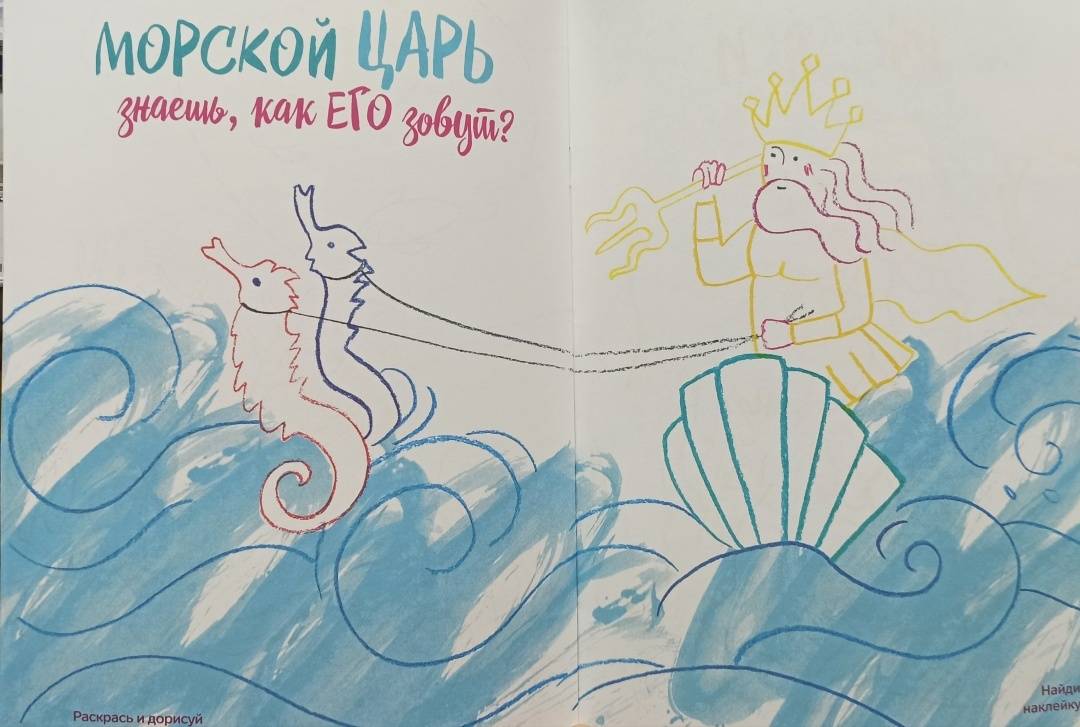 МОРСКОЙ ЦАРЬ
знаешь, как ЕГО зовут?
Раскрась и дорисуй
Найди
наклейку